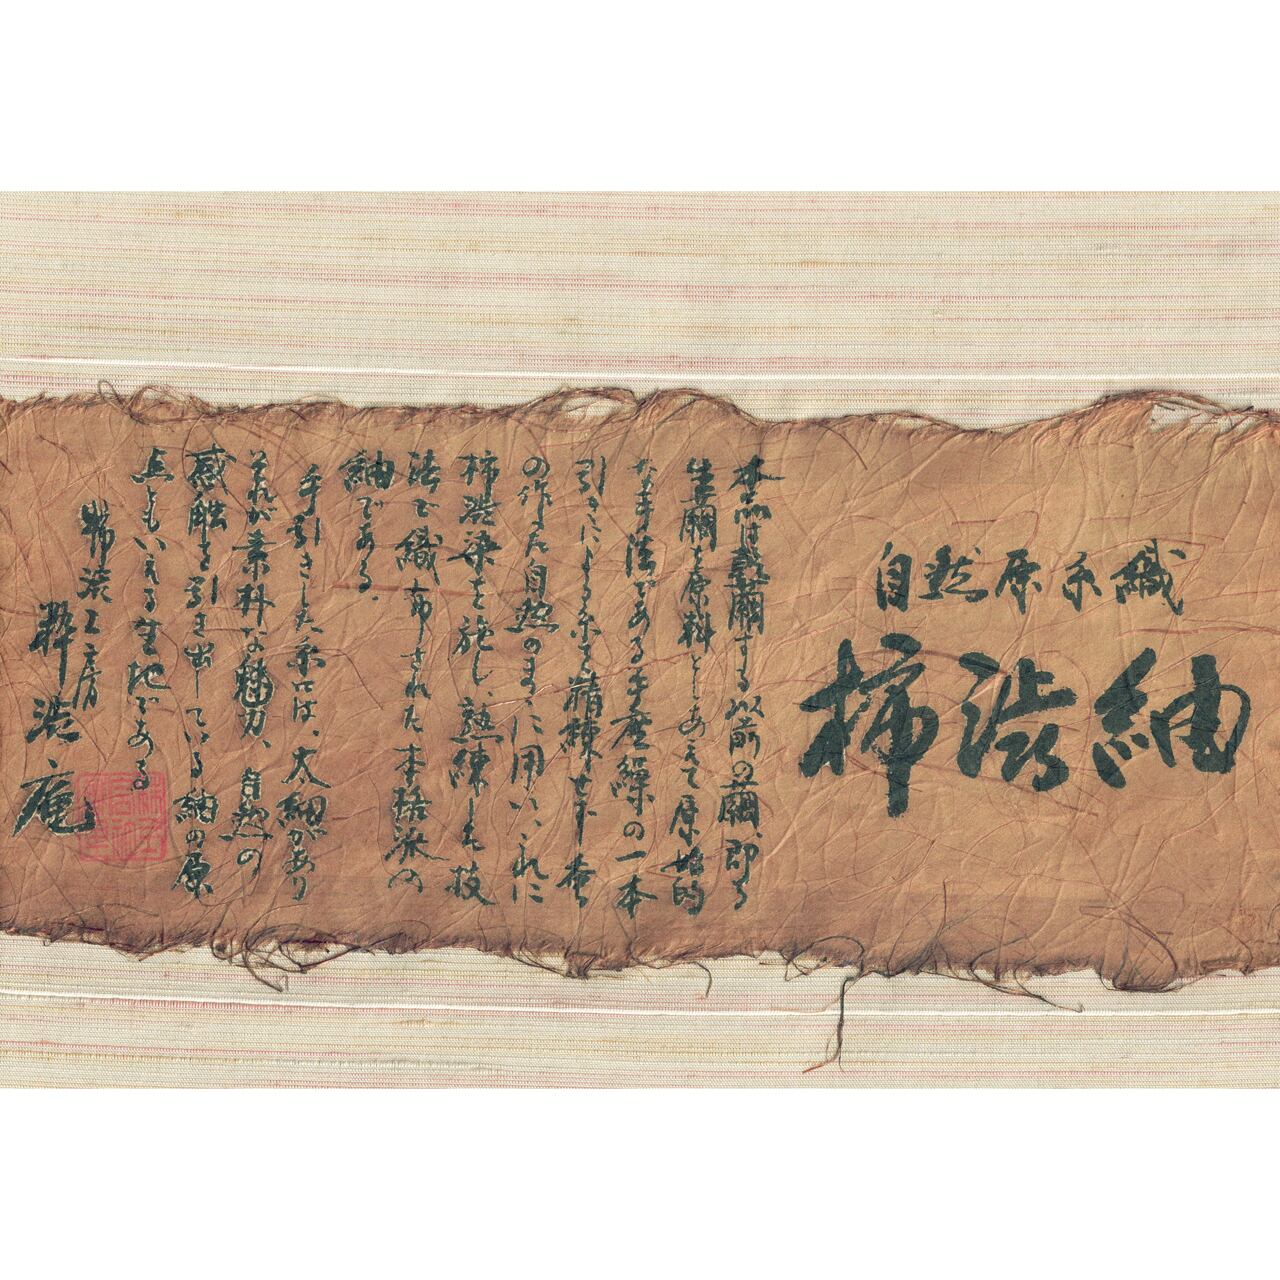 自然原糸織
柿渋紬
本品は殺繭する以前の繭、即ち
生繭を原料とし、あえて原始的
な手法である手座繰の一本
引きによる糸で精練せず蚕
の作った自然のままに用い、これに
柿渋染を施し、熟練した技
法で織布された本格派の
紬である。
手引きした糸には、太細があり
それが素朴な魅力、自然の
感触を引き出している紬の原
点ともいえる生地である
柿渋工房
粋渋庵